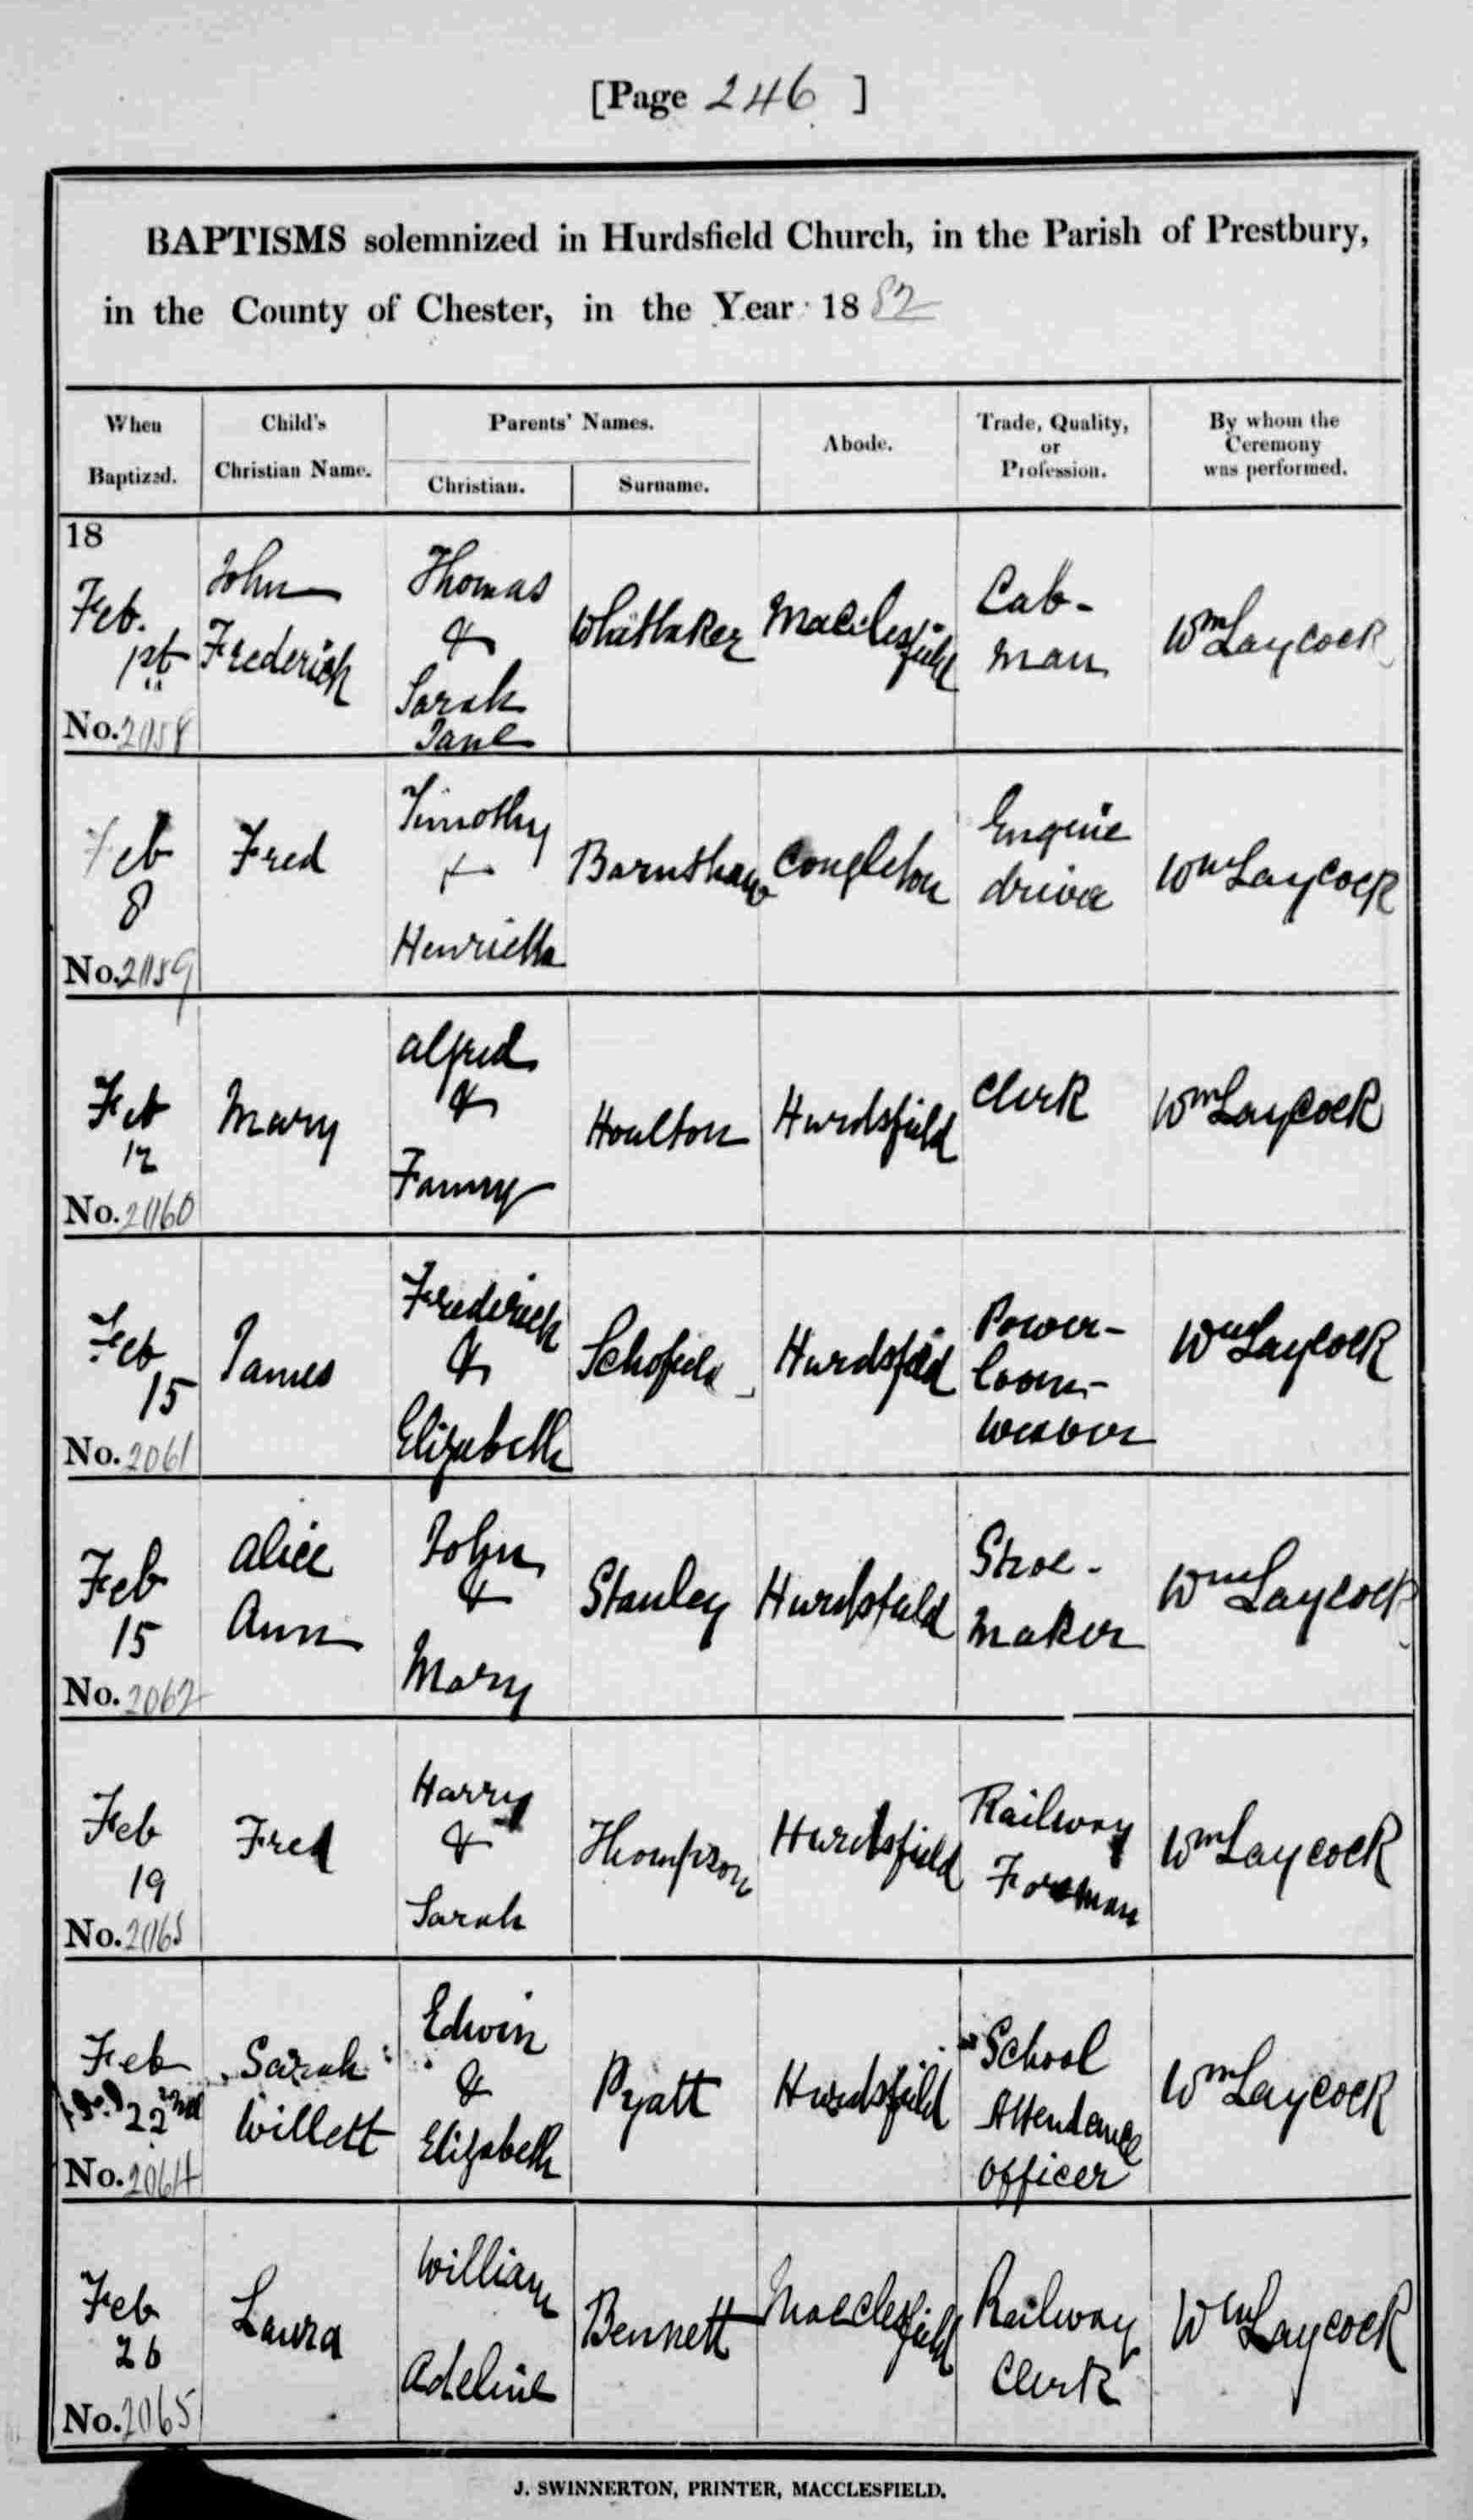 [Page 246 ]
BAPTISMS solemnized in Hurdsfield Church, in the Parish of Prestbury,
in the County of Chester, in the Year 1882
When Baptized.
Child's Christian Name.
Parents' Names.
Christian.
Surname.
Abode.
Trade, Quality, or Profession.
By whom the Ceremony was performed.
18
Feb. 1st
No. 2058
John Frederick
Thomas & Sarah Jane
Whittaker
Macclesfield
Cab-man
Wm Laycock
Feb 8
No. 2059
Fred
Timothy + Henrietta
Barnshaw
Congleton
Engine driver
Wm Laycock
Feb 12
No. 2060
Mary
Alfred & Fanny
Houlton
Hurdsfield
Clerk
Wm Laycock
Feb 15
No. 2061
James
Frederick & Elizabeth
Schofield
Hurdsfield
Power-loom-weaver
Wm Laycock
Feb 15
No. 2062
Alice Ann
John & Mary
Stanley
Hurdsfield
Shoe-maker
Wm Laycock
Feb 19
No. 2063
Fred
Harry & Sarah
Thompson
Hurdsfield
Railway Foreman
Wm Laycock
Feb 22nd
No. 2064
Sarah Willett
Edwin & Elizabeth
Pyatt
Hurdsfield
School Attendance Officer
Wm Laycock
Feb 26
No. 2065
Laura
William Adeline
Bennett
Macclesfield
Railway Clerk
Wm Laycock
J. SWINNERTON, PRINTER, MACCLESFIELD.